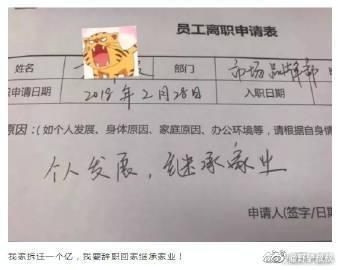 员工离职申请表
姓名 部门 市场品牌部
申请日期 2018年2月28日 入职日期
原因:(如个人发展、身体原因、家庭原因、办公环境等,请根据自身情
个人发展,继承家业
申请人(签字/日期
我家拆迁一个亿,我要辞职回家继承家业!